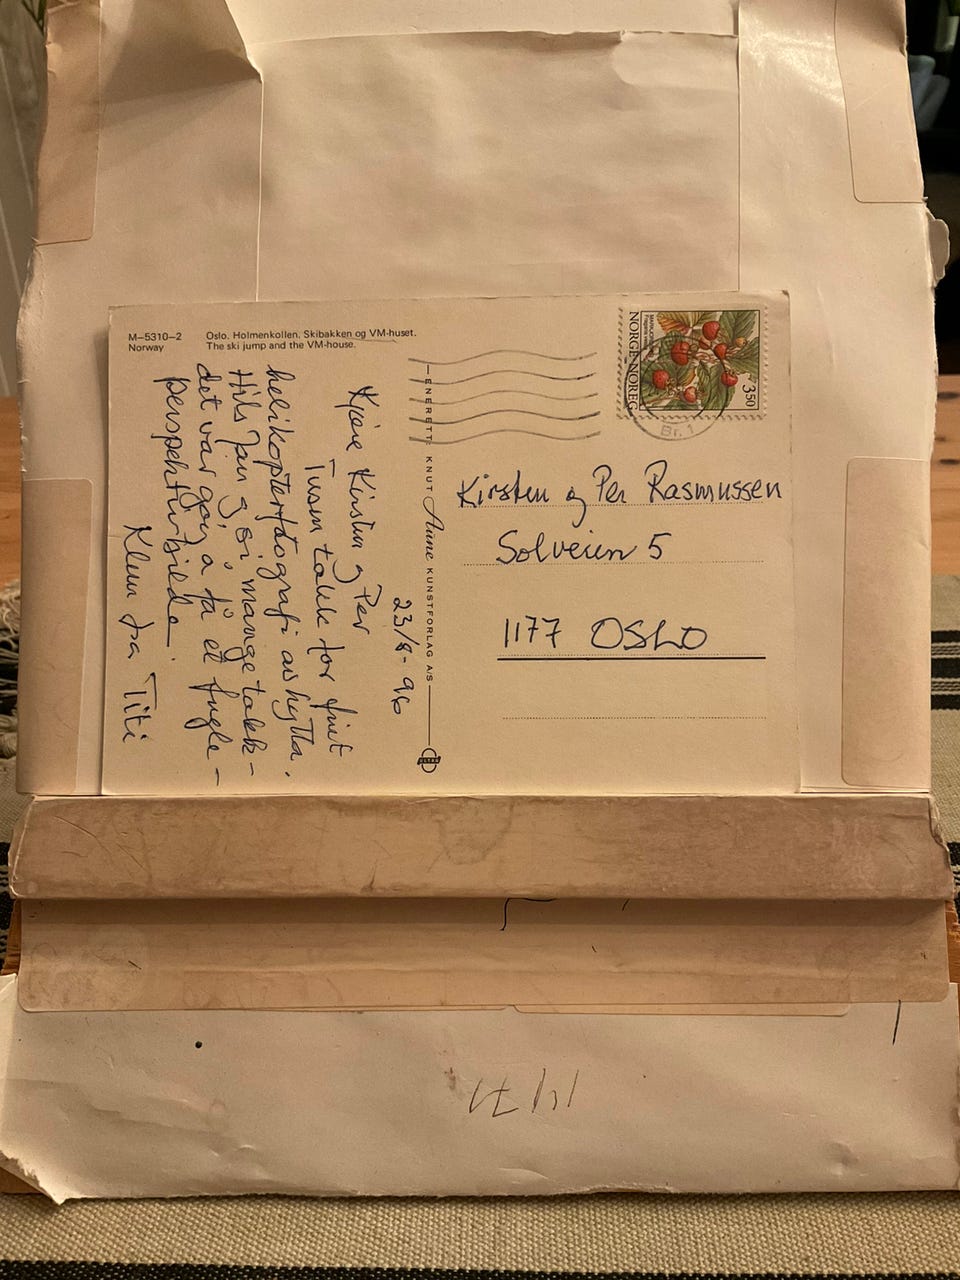 M-5310-2
Norway
Oslo. Holmenkollen. Skibakken og VM-huset.
The ski jump and the VM-house.
23/8-96
Kjære Kirsten og Per
Tusen takk for fint
helikopterfotografi av hytta.
Hils Jan og si mange takk -
det var gøy å få et fugle-
perspektivbilde.
Klem fra Titi
ENERETT: KNUT Aune KUNSTFORLAG A/S
NORGE·NOREG
350
Br. 1
Kirsten og Per Rasmussen
Solveien 5
1177 OSLO